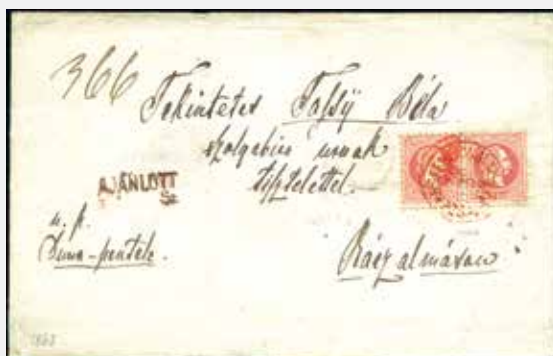 366
Tekintetes Béla
szolgabíró urnak
tisztelettel.
AJÁNLOTT
u. p.
Duna-pentele.
Rácz almáson